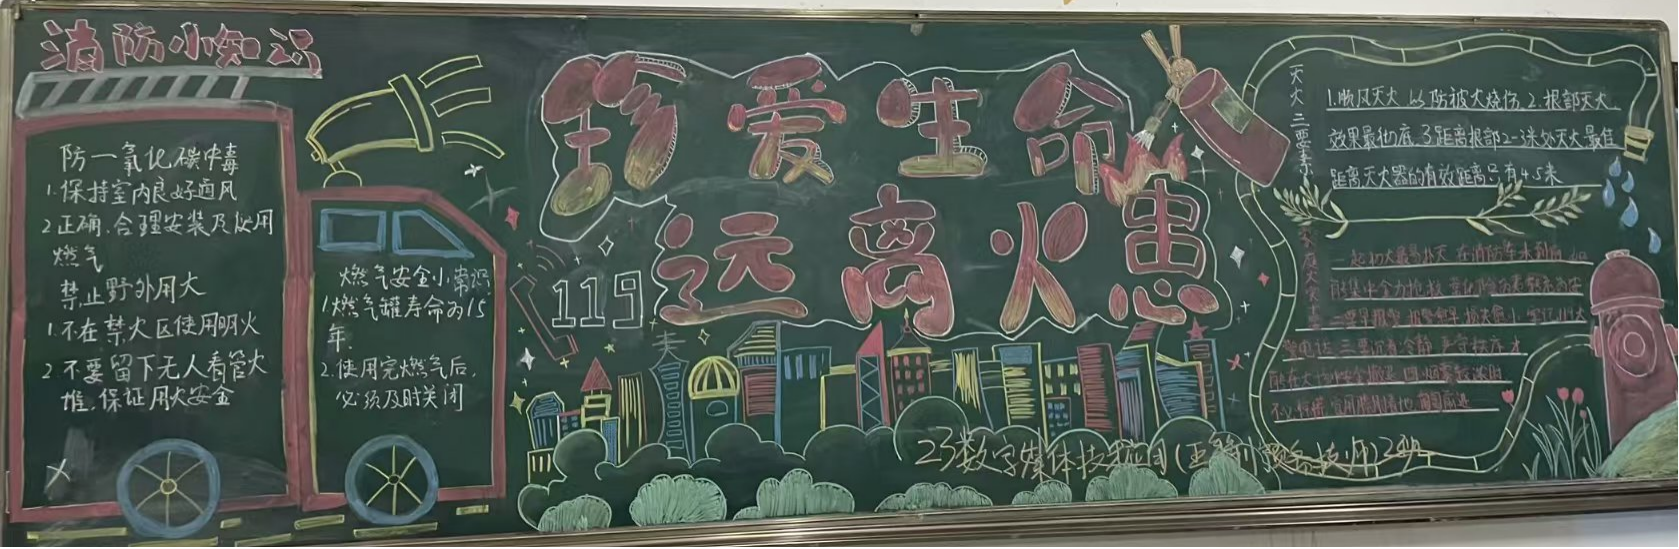 消防小知识
防一氧化碳中毒
1.保持室内良好通风
2正确.合理安装及使用
燃气
禁止野外用火
1.不在禁火区使用明火
2.不要留下无人看管火
堆.保证用火安全
燃气安全小常识
1.燃气罐寿命为15
年.
2.使用完燃气后,
必须及时关闭
珍爱生命
远离火患
119
灭火三要素
1.顺风灭火 以防被火烧伤.2.根部灭火.
效果最彻底.3距离根部2-3米处灭火最佳
距离灭火器的有效距离只有4.5米
家庭火灾
一起初火最易扑灭 在消防车未到前
能集中全力抢救
三要沉着冷静 严守秩序 才
能在火场安全撤退 四烟雾较浓时
23数字媒体技术应用(王
2班